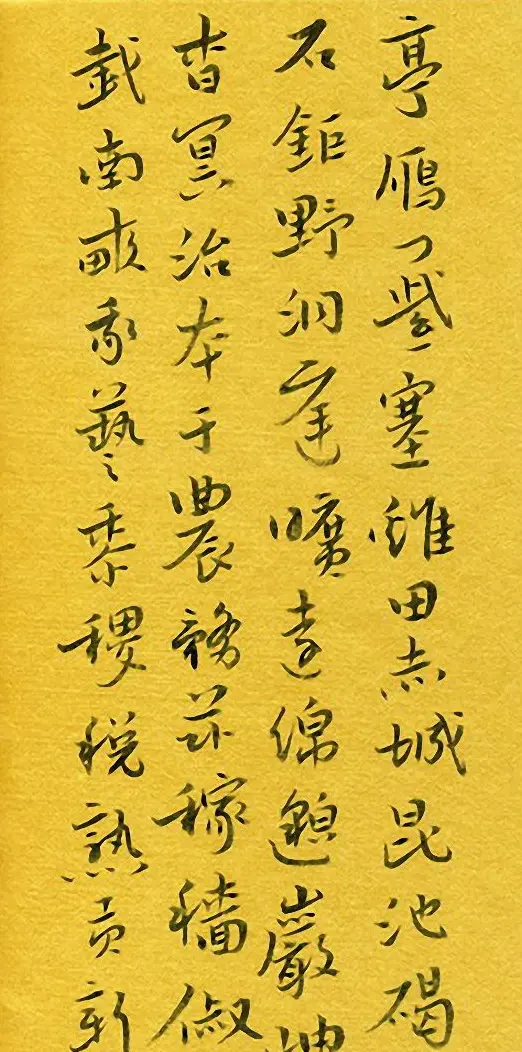 亭雁门紫塞鸡田赤城昆池碣
石鉅野洞庭曠遠綿邈巖岫
杳冥治本于農務茲稼穡俶
載南畝我藝黍稷稅熟貢新